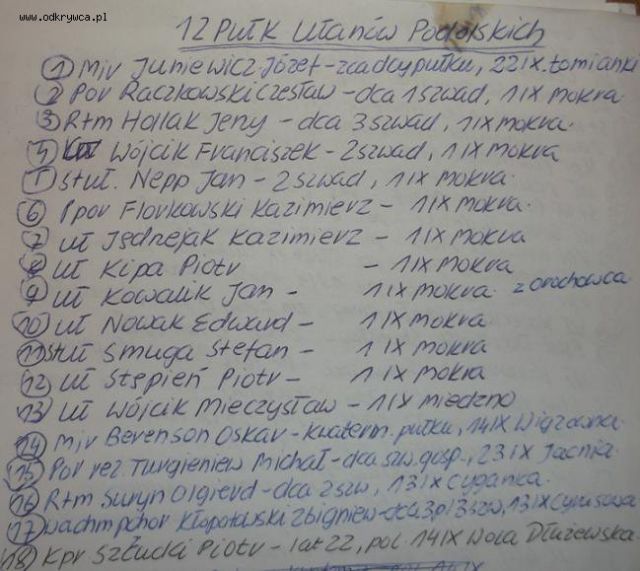 www.odkrywca.pl
12 Pułk Ułanów Podolskich
1) Mjr Juniewicz Józef - zcadcy pułku, 22 IX. Łomianki
2 Por Raczkowski Czesław - dca 1 szwad, 1 IX Mokra
3 Rtm Hollak Jerzy - dca 3 szwad, 1 IX Mokra
Wójcik Franciszek - 2 szwad, 1 IX Mokra
st uł. Nepp Jan - 2 szwad, 1 IX Mokra
6 ppor Florkowski Kazimierz - 1 IX Mokra
7 uł Jędrzejak Kazimierz - 1 IX Mokra
8 uł Kipa Piotr - 1 IX Mokra
9 uł Kowalik Jan - 1 IX Mokra z Orochowca
10 uł Nowak Edward - 1 IX Mokra
11 st uł Smuga Stefan - 1 IX Mokra
12 uł Stępień Piotr - 1 IX Mokra
13 uł Wójcik Mieczysław - 1 IX Miedzno
14 Mjr Berenson Oskar - kwaterm. pułku, 14 IX Wiązowna
15 Por rez. Turgieniew Michał - dca szw. gosp., 23 IX Jacnia
16 Rtm Suryn Olgierd - dca 2 szw, 13 IX Cyganka
17 wachm pchor Kłopotowski Zbigniew - dca 3 pl 3 szw, 13 IX
18) Kpr Szłucki Piotr - lat 22, pol. 14 IX Wola Dłużewska